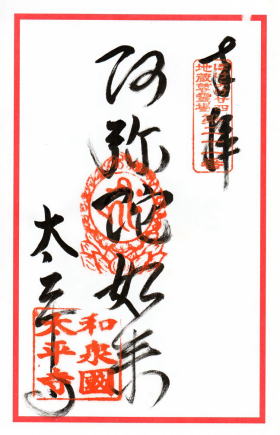 奉拝
阿弥陀如来
太平寺
和泉國
太平寺